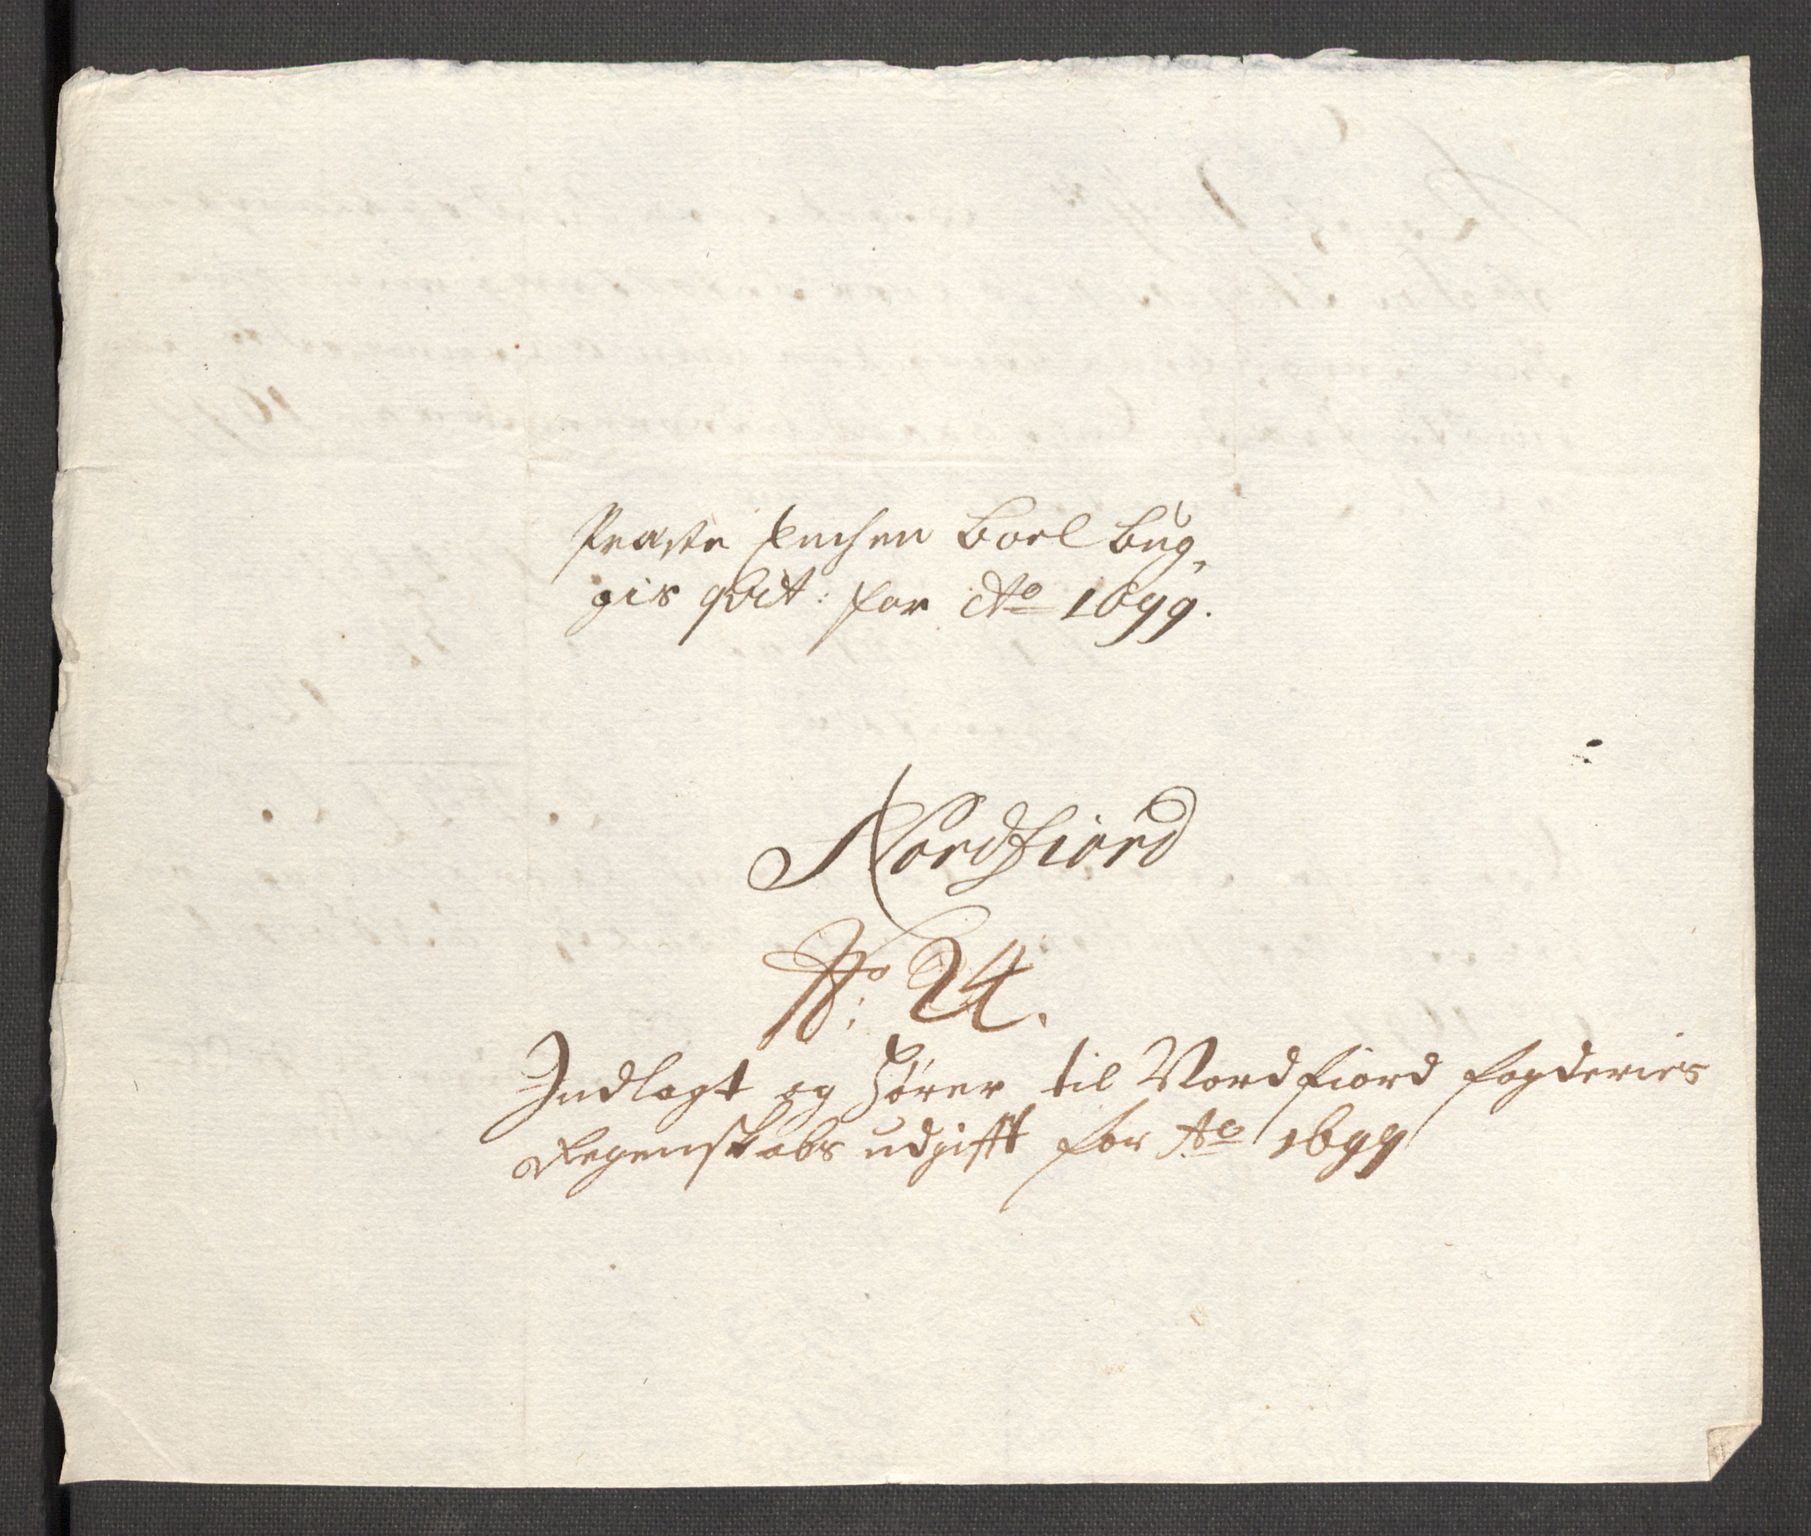 Præste Enchen Boel Bug,
gis qvit: for Ao 1699.
Nordfiord
No: 24.
Indlagt og hører til Nordfiord fogderies
Regenskabs udgifft for Ao 1699